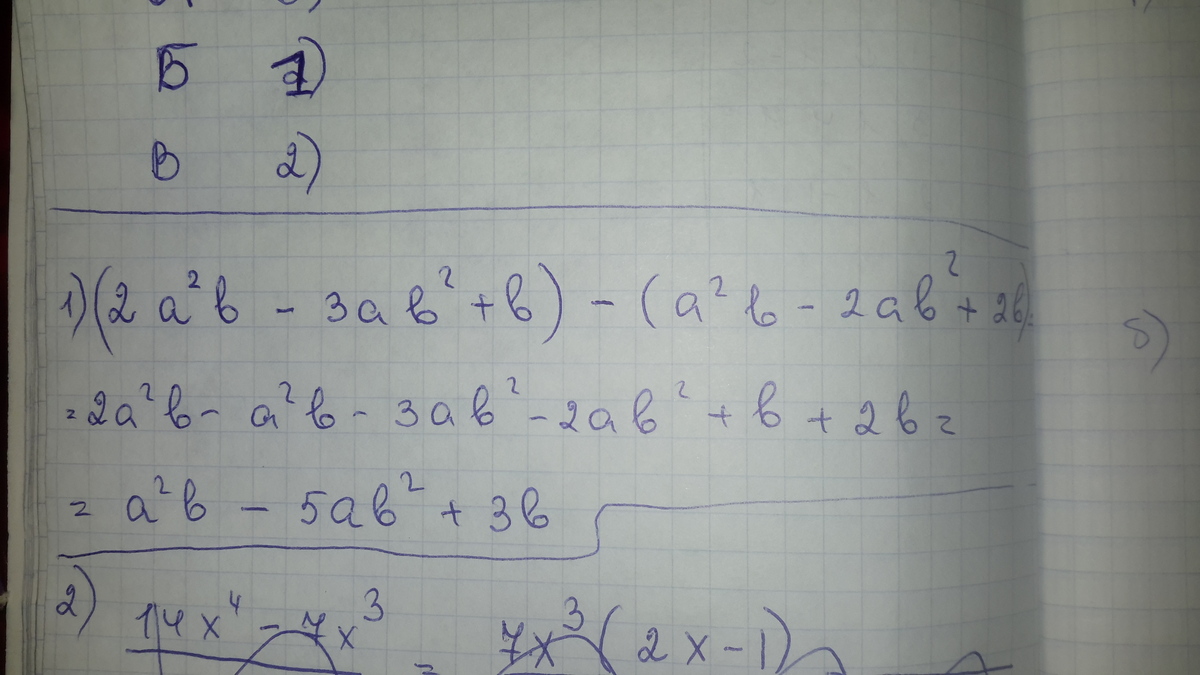 Б 1)
В 2)
1) (2a²b - 3ab² + b) - (a²b - 2ab² + 2b) =
= 2a²b - a²b - 3ab² - 2ab² + b + 2b =
= a²b - 5ab² + 3b
2) 14x⁴ - 7x³ = 7x³(2x - 1)
б)